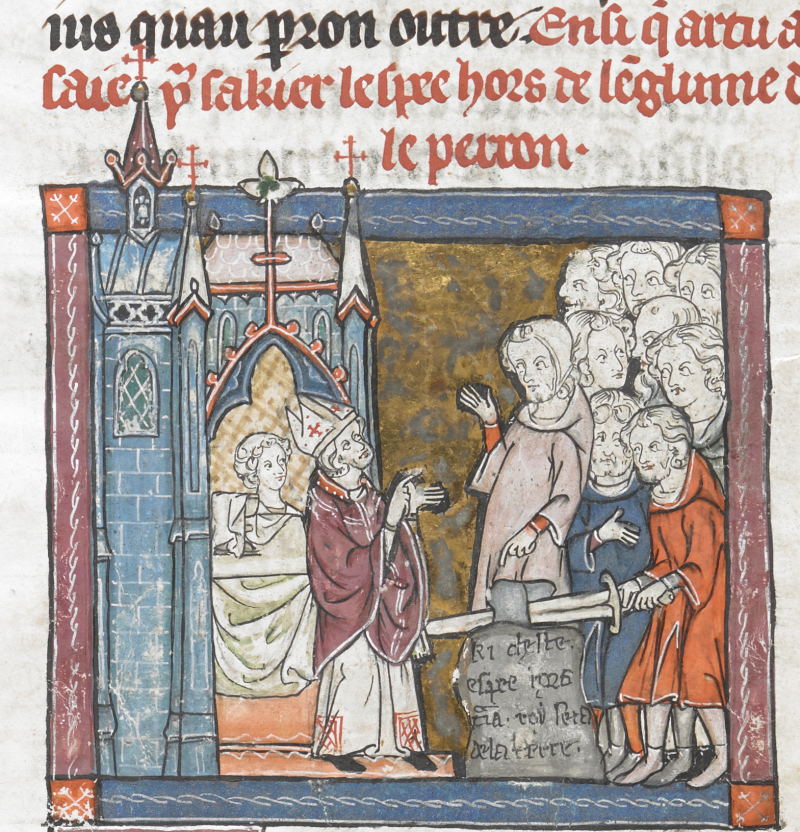 ius quau perron outre. Ensi q̃ artu a
saie p̃ sakier lespee hors de lẽglume d
le perron.
Ki cheste
espee
roi sera
de la terre.